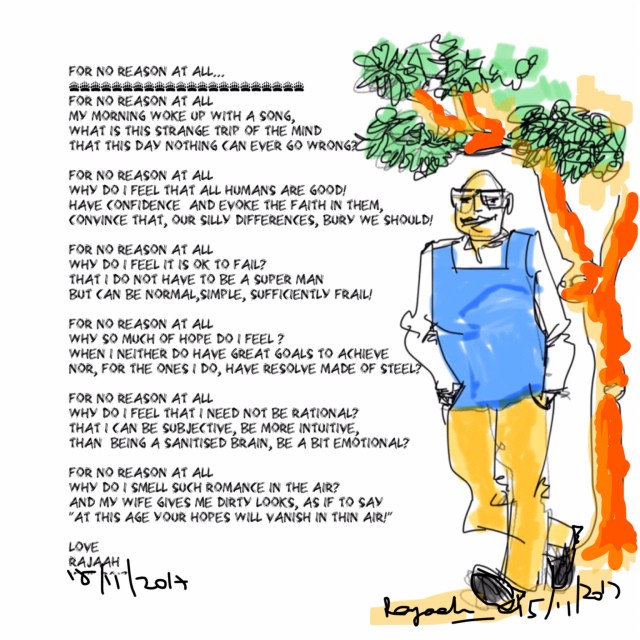 FOR NO REASON AT ALL...
FOR NO REASON AT ALL
MY MORNING WOKE UP WITH A SONG,
WHAT IS THIS STRANGE TRIP OF THE MIND
THAT THIS DAY NOTHING CAN EVER GO WRONG?
FOR NO REASON AT ALL
WHY DO I FEEL THAT ALL HUMANS ARE GOOD!
HAVE CONFIDENCE AND EVOKE THE FAITH IN THEM,
CONVINCE THAT, OUR SILLY DIFFERENCES, BURY WE SHOULD!
FOR NO REASON AT ALL
WHY DO I FEEL IT IS OK TO FAIL?
THAT I DO NOT HAVE TO BE A SUPER MAN
BUT CAN BE NORMAL,SIMPLE, SUFFICIENTLY FRAIL!
FOR NO REASON AT ALL
WHY SO MUCH OF HOPE DO I FEEL ?
WHEN I NEITHER DO HAVE GREAT GOALS TO ACHIEVE
NOR, FOR THE ONES I DO, HAVE RESOLVE MADE OF STEEL?
FOR NO REASON AT ALL
WHY DO I FEEL THAT I NEED NOT BE RATIONAL?
THAT I CAN BE SUBJECTIVE, BE MORE INTUITIVE,
THAN BEING A SANITISED BRAIN, BE A BIT EMOTIONAL?
FOR NO REASON AT ALL
WHY DO I SMELL SUCH ROMANCE IN THE AIR?
AND MY WIFE GIVES ME DIRTY LOOKS, AS IF TO SAY
"AT THIS AGE YOUR HOPES WILL VANISH IN THIN AIR!"
LOVE
RAJAAH
15/11/2017
Rajaah 15/11/2017